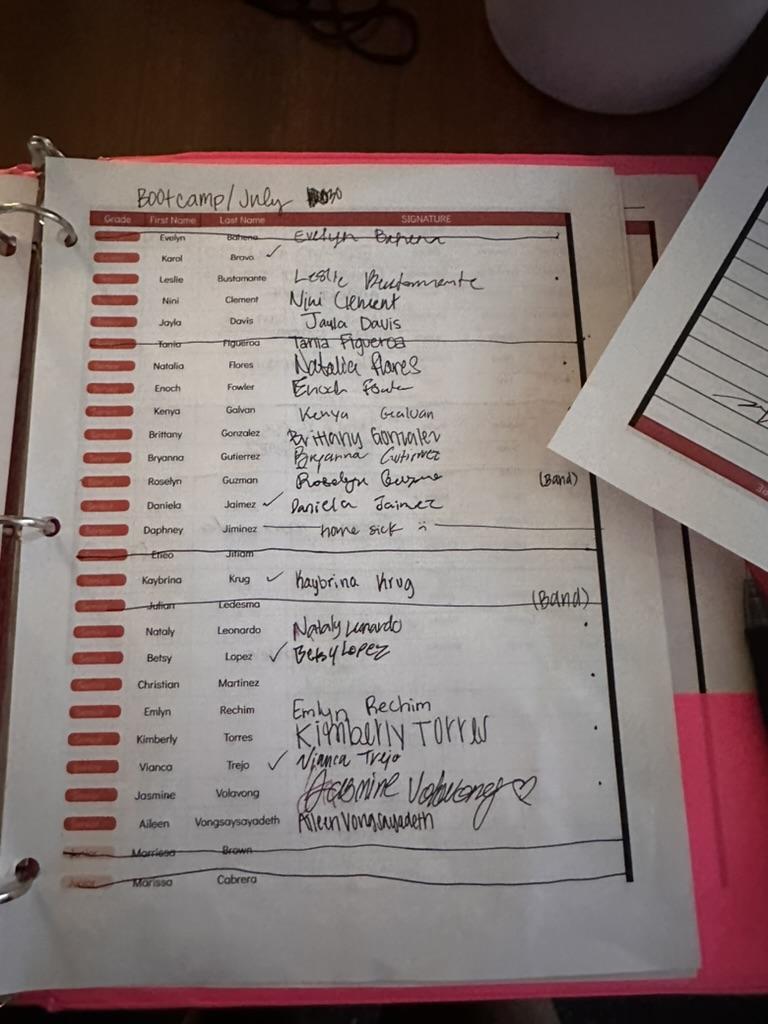 Bootcamp/July 30
Grade First Name Last Name SIGNATURE
Evelyn Bahena Evelyn Bahena
Karol Bravo ✓
Leslie Bustamante Leslie Bustamante
Nini Clement Nini Clement
Jayla Davis Jayla Davis
Tania Figueroa Tania Figueroa
Natalia Flores Natalia Flores
Enoch Fowler Enoch Fowler
Kenya Galvan Kenya Gealvan
Brittany Gonzalez Brittany Gonzalez
Bryanna Gutierrez Bryanna Gutierrez
Roselyn Guzman Roselyn Guzman (Band)
Daniela Jaimez ✓ Daniela Jaimez
Daphney Jiminez home sick :(
Jiriam
Kaybrina Krug ✓ Kaybrina Krug
Julian Ledesma (Band)
Nataly Leonardo Nataly Leonardo
Betsy Lopez ✓ Betsy Lopez
Christian Martinez
Emlyn Rechim Emlyn Rechim
Kimberly Torres Kimberly Torres
Vianca Trejo ✓ Vianca Trejo
Jasmine Volavong Jasmine Volavong ♡
Aileen Vongsaysayadeth Aileen Vongsayadeth
Junior Morrissa Brown
Junior Marissa Cabrera